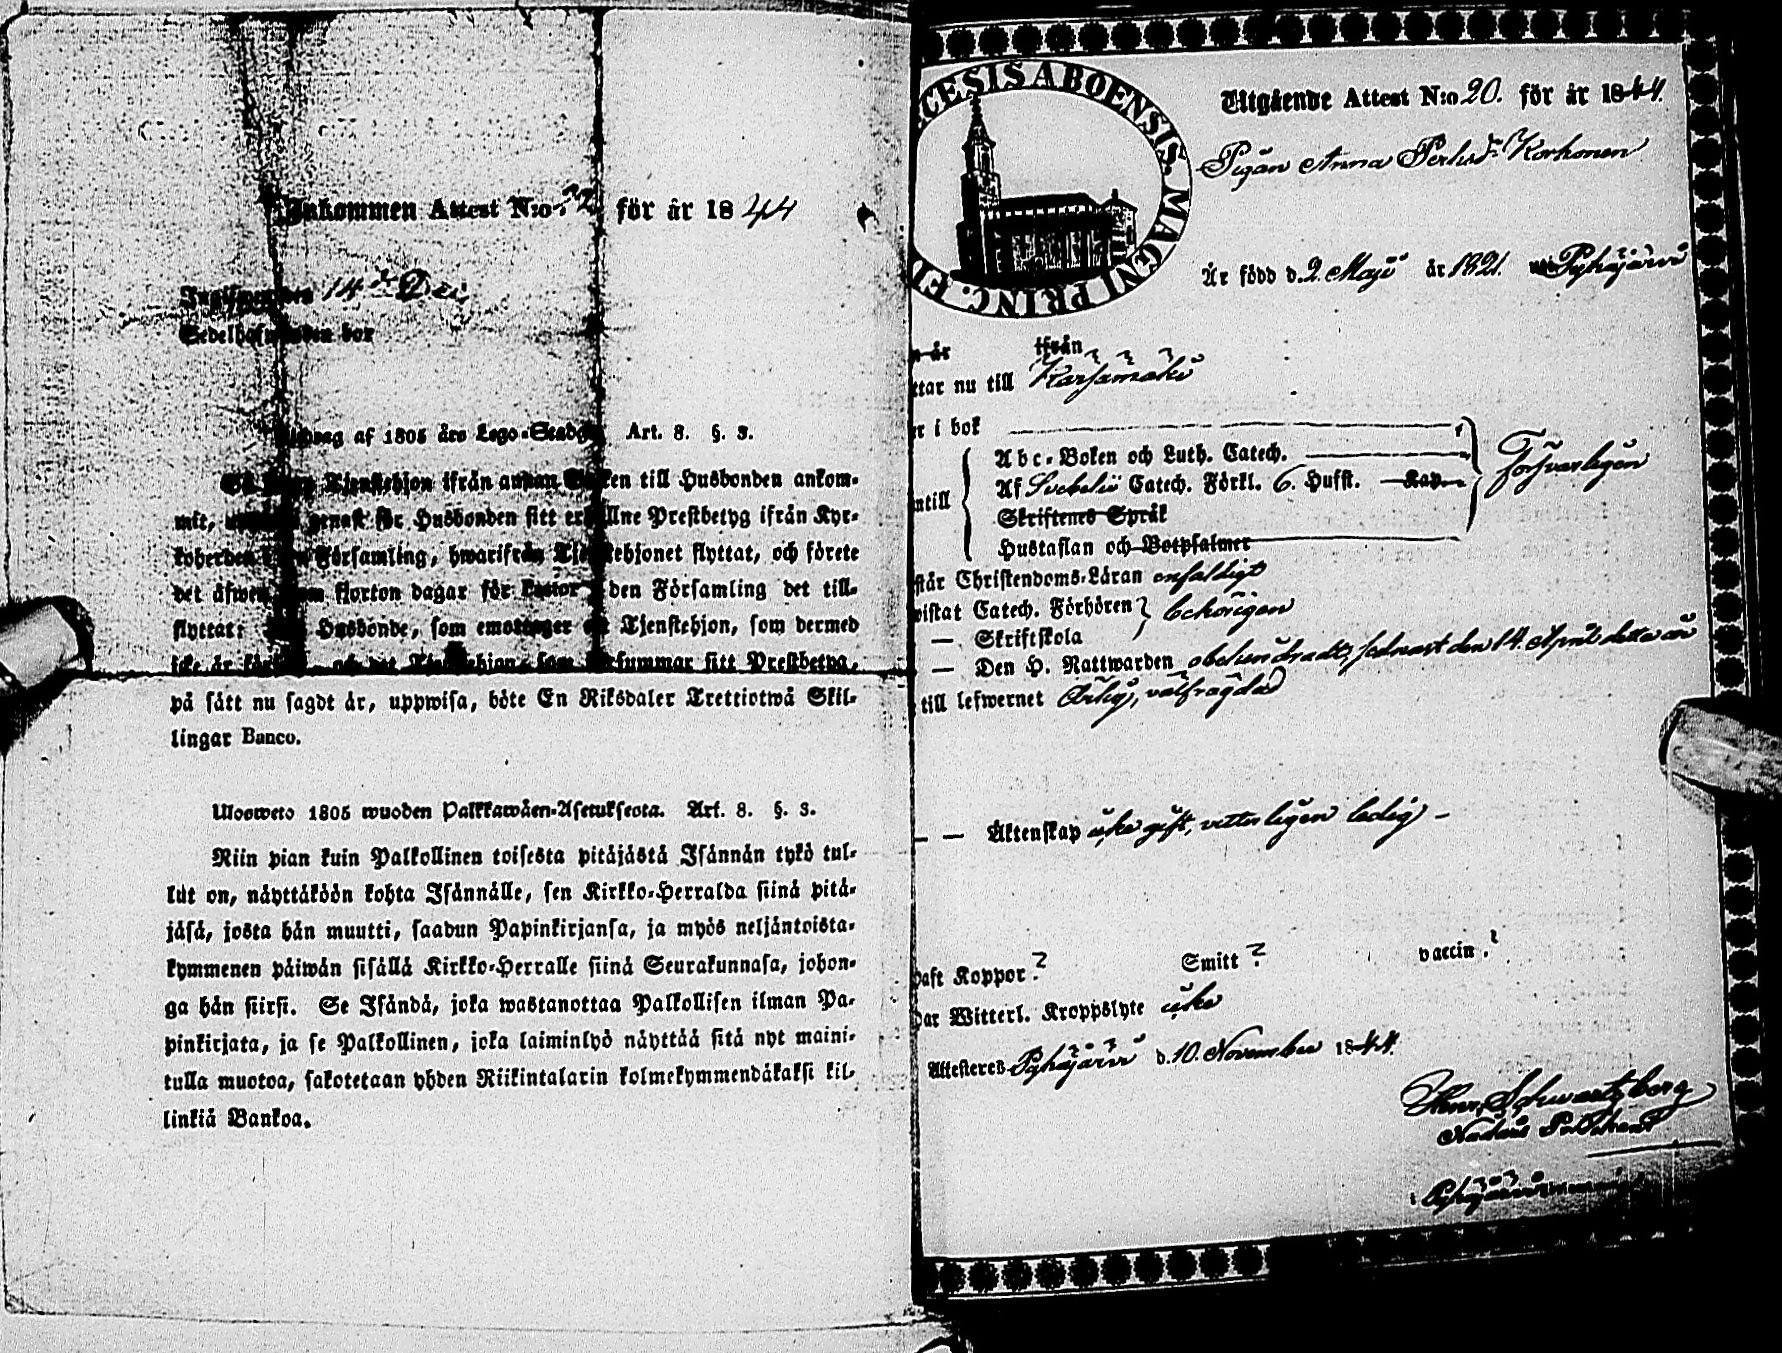 Inkommen Attest N:o 32 för år 1844
14 Dec
bor
af 1805 års Lego-Stadga Art. 8. §. 3.
Tjenstehjon ifrån annan till Husbonden ankom-
mit, genast för Husbonden sitt Prestbetyg ifrån Kyr-
koherden Församling, hwarifrån Tjenstehjonet flyttat, och förete
det äfwen fjorton dagar för Pastor den Församling det till-
flyttat: Husbonde, som emottager Tjenstehjon, som dermed
icke är och det Tjenstehjon, som försummar sitt Prestbetyg,
på sätt nu sagdt är, uppwisa, böte En Riksdaler Trettiotwå Skil-
lingar Banco.
Ulosweto 1805 wuoden Palkkawäen-Asetuksesta. Art. 8. §. 3.
Niin pian kuin Palkollinen toisesta pitäjästä Isännän tykö tul-
lut on, näyttäköön kohta Isännälle, sen Kirkko-Herralda siinä pitä-
jäsä, josta hän muutti, saadun Papinkirjansa, ja myös neljäntoista-
kymmenen päiwän sisällä Kirkko-Herralle siinä Seurakunnasa, johon-
ga hän siirsi. Se Isändä, joka wastanottaa Palkollisen ilman Pa-
pinkirjata, ja se Palkollinen, joka laiminlyö näyttää sitä nyt maini-
tulla muotoa, sakotetaan yhden Riikintalarin kolmekymmendäkaksi kil-
linkiä Bankoa.
CESIS ABOENSIS. MAGNI PRINC. FI
Utgående Attest N:o 20. för år 1844.
Pigan Anna Perhsdr Korhonen
Är född d. 2. Maji år 1821. Pyhäjärvi
är ifrån
ttar nu till Kärsämäki
r i bok
Abc-Boken och Luth. Catech.
Af Svebelii Catech. Förkl. 6. Hufst. Kap. Försvarligen
ntill
Skriftenes Språk
Hustaflan och Botpsalmer
står Christendoms-Läran enfaldigt
wistat Catech. Förhören behörigen
— Skriftskola
— Den H. Nattwarden obehindradt, sednast den 14. April detta år
till lefwernet Ärlig, välfrägdad
— — Äktenskap icke gift, vitterligen ledig –
haft Koppor ? Smitt ? vaccin ?
har Witterl. Kroppslyte icke
Attesteras Pyhäjärvi d. 10. November 1844.
Henr. Schwartzberg
Pyhäjärvi